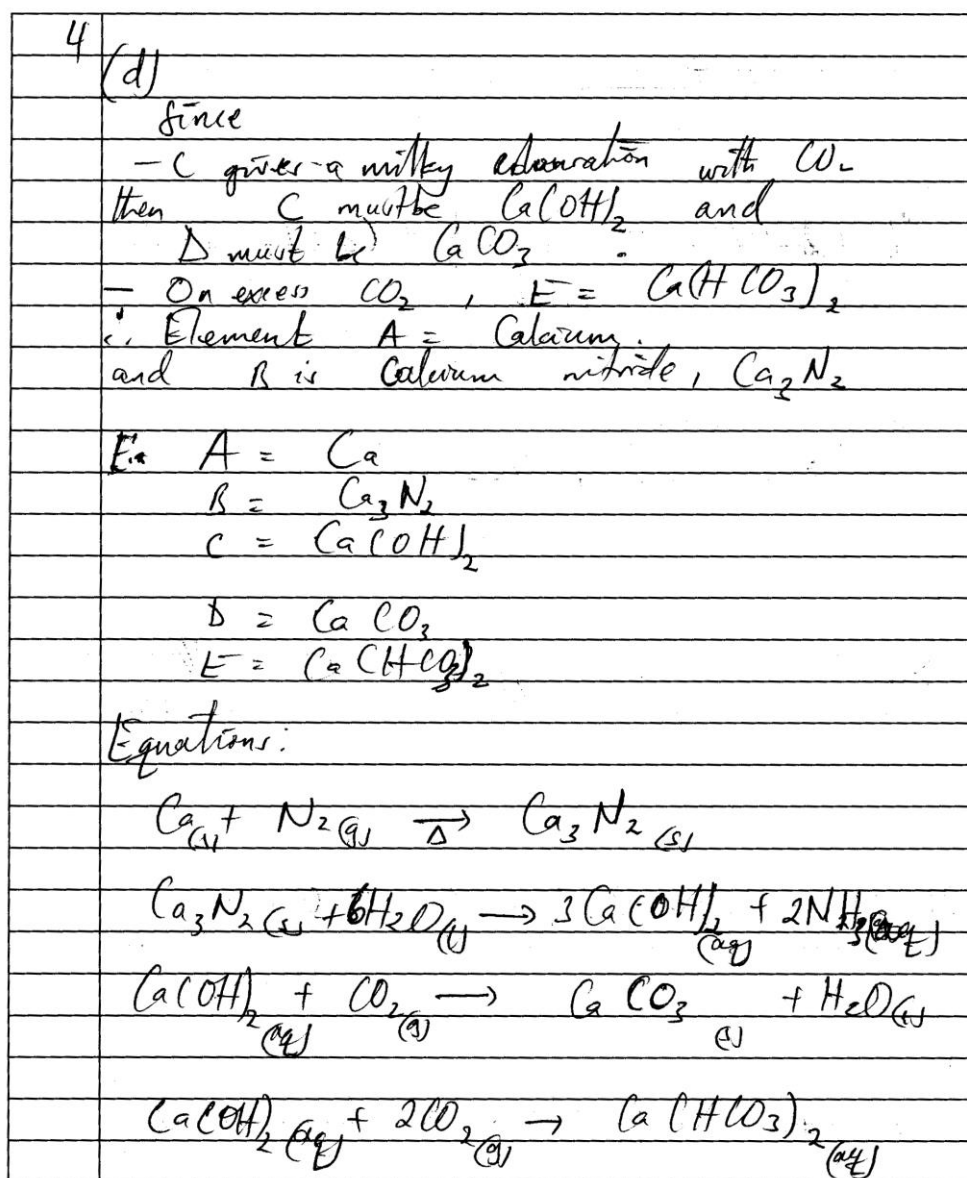 4
(d)
Since
- C gives a milky colouration with CO2
then C must be Ca(OH)2 and
D must be CaCO3.
- On excess CO2, E = Ca(HCO3)2
∴ Element A = Calcium.
and B is Calcium nitride, Ca3N2
A = Ca
B = Ca3N2
C = Ca(OH)2
D = CaCO3
E = Ca(HCO3)2
Equations:
Ca(s) + N2(g) →Δ Ca3N2(s)
Ca3N2(s) + 6H2O(l) → 3Ca(OH)2(aq) + 2NH3(aq)
Ca(OH)2(aq) + CO2(g) → CaCO3(s) + H2O(l)
Ca(OH)2(aq) + 2CO2(g) → Ca(HCO3)2(aq)